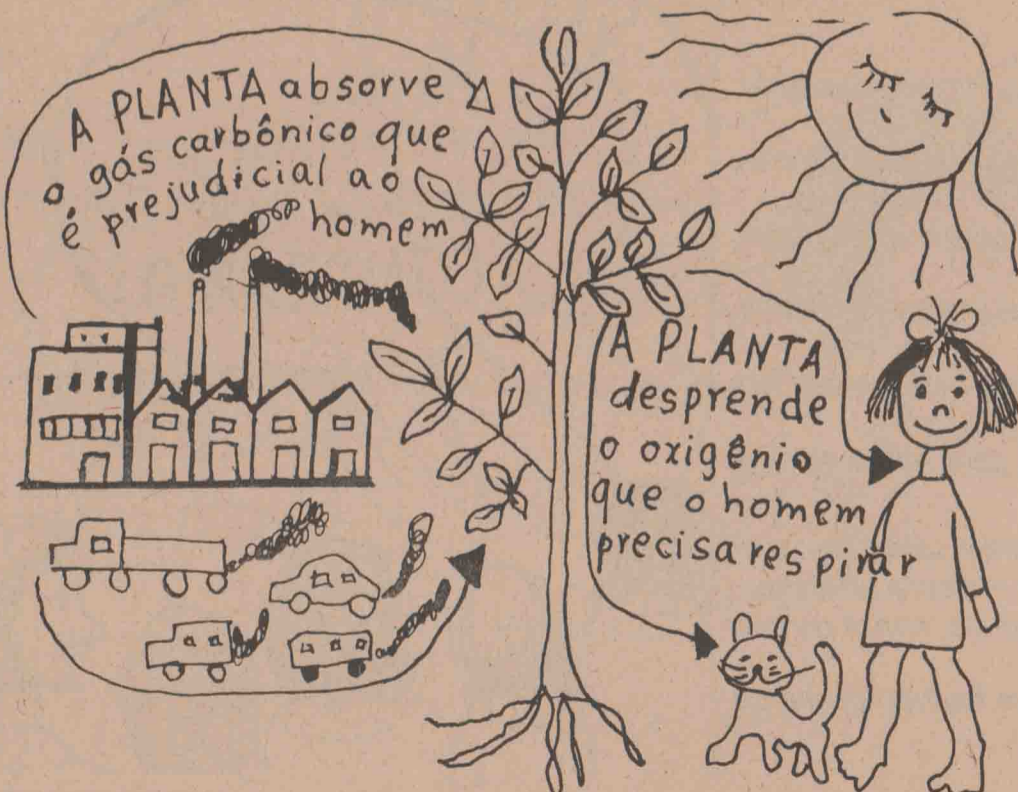 A PLANTA absorve
o gás carbônico que
é prejudicial ao
homem
A PLANTA
desprende
o oxigênio
que o homem
precisa respirar